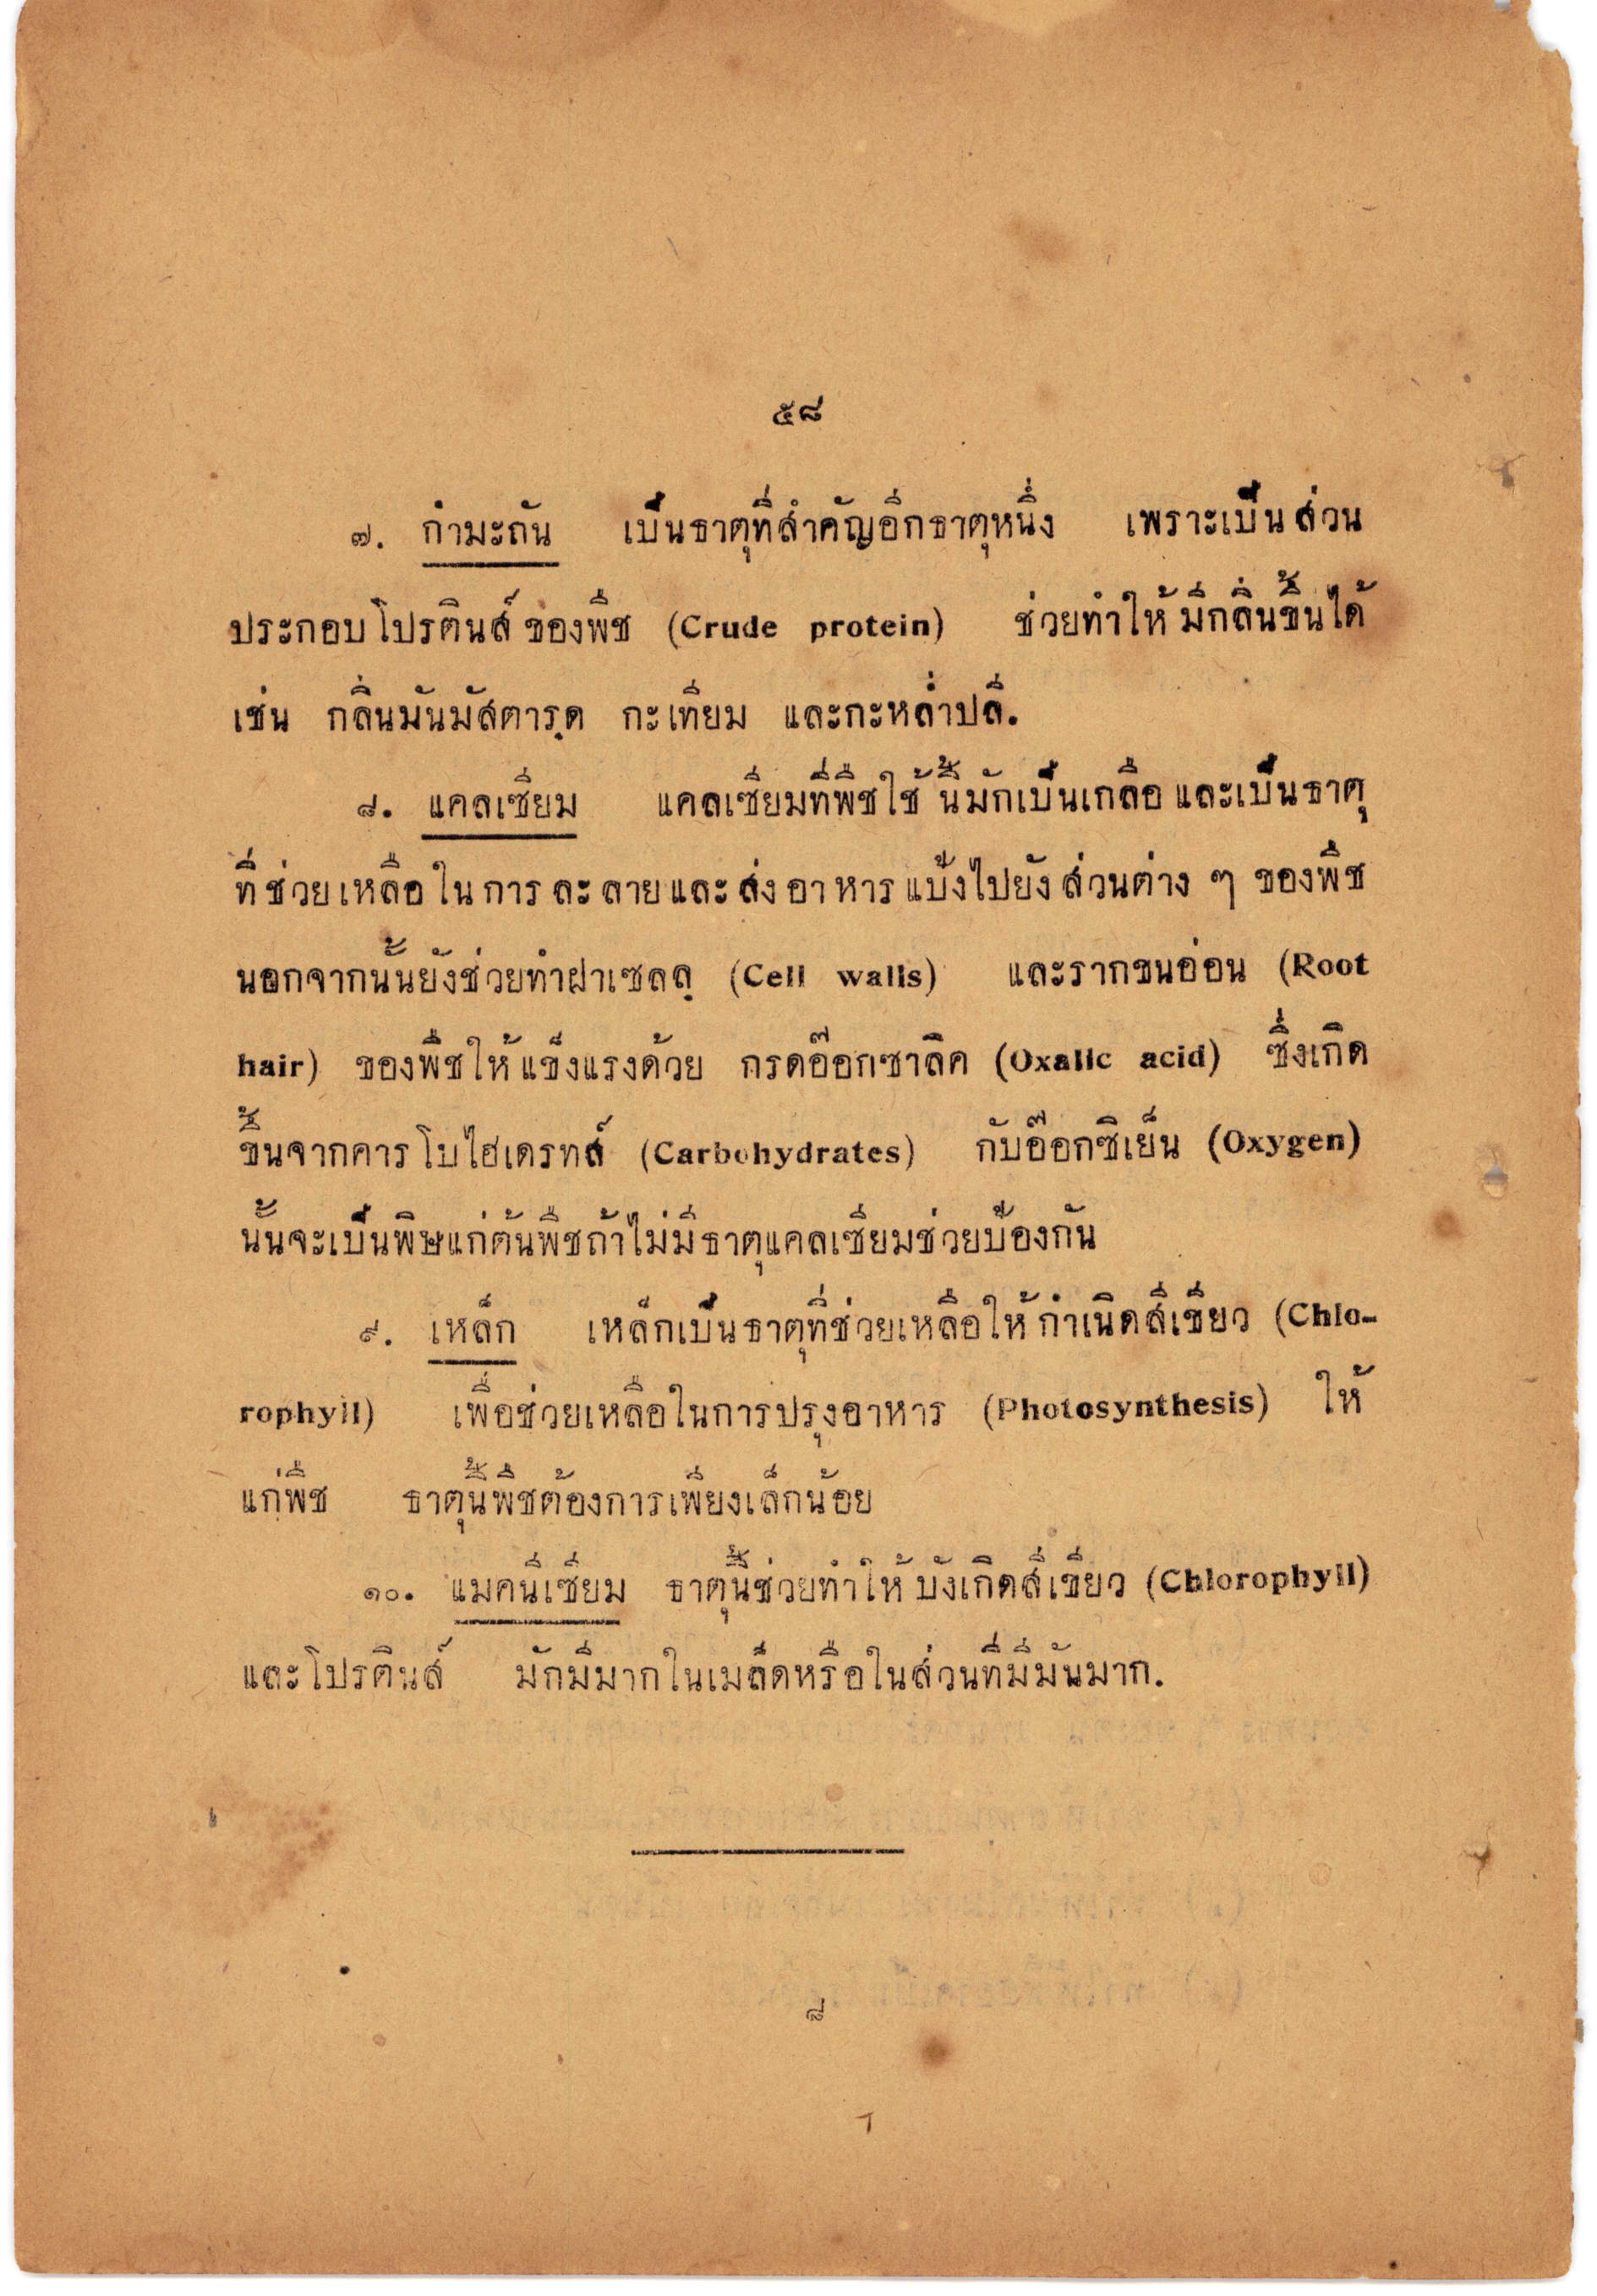 ๕๘
๗. กำมะถัน เป็นธาตุที่สำคัญอีกธาตุหนึ่ง เพราะเป็นส่วน
ประกอบโปรตีนส์ของพืช (Crude protein) ช่วยทำให้มีกลิ่นขึ้นได้
เช่น กลิ่นมันมัสตารฺด กะเทียม และกะหล่ำปลี.
๘. แคลเซียม แคลเซียมที่พืชใช้นี้มักเป็นเกลือและเป็นธาตุ
ที่ช่วยเหลือในการละลายและส่งอาหารแป้งไปยังส่วนต่าง ๆ ของพืช
นอกจากนั้นยังช่วยทำฝาเซลลฺ (Cell walls) และรากขนอ่อน (Root
hair) ของพืชให้แข็งแรงด้วย กรดอ๊อกซาลิค (Oxalic acid) ซึ่งเกิด
ขึ้นจากคารโบไฮเดรทส์ (Carbohydrates) กับอ๊อกซิเย็น (Oxygen)
นั้นจะเป็นพิษแก่ต้นพืชถ้าไม่มีธาตุแคลเซียมช่วยป้องกัน
๙. เหล็ก เหล็กเป็นธาตุที่ช่วยเหลือให้กำเนิดสีเขียว (Chlo-
rophyll) เพื่อช่วยเหลือในการปรุงอาหาร (Photosynthesis) ให้
แก่พืช ธาตุนี้พืชต้องการเพียงเล็กน้อย
๑๐. แมคนีเซียม ธาตุนี้ช่วยทำให้บังเกิดสีเขียว (Chlorophyll)
และโปรตีนส์ มักมีมากในเมล็ดหรือในส่วนที่มีมันมาก.
๘